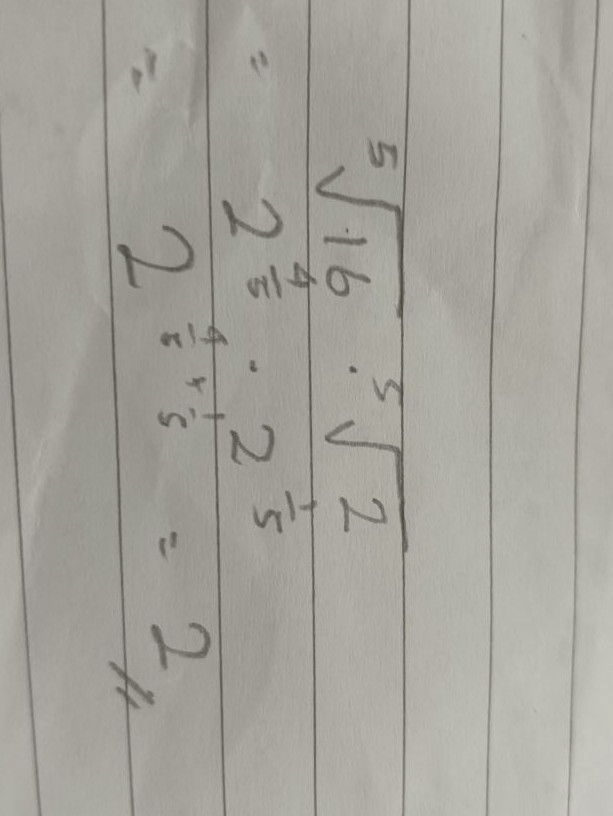 ⁵√16 · ⁵√2
= 2^(4/5) · 2^(1/5)
= 2^(4/5 + 1/5) = 2 //